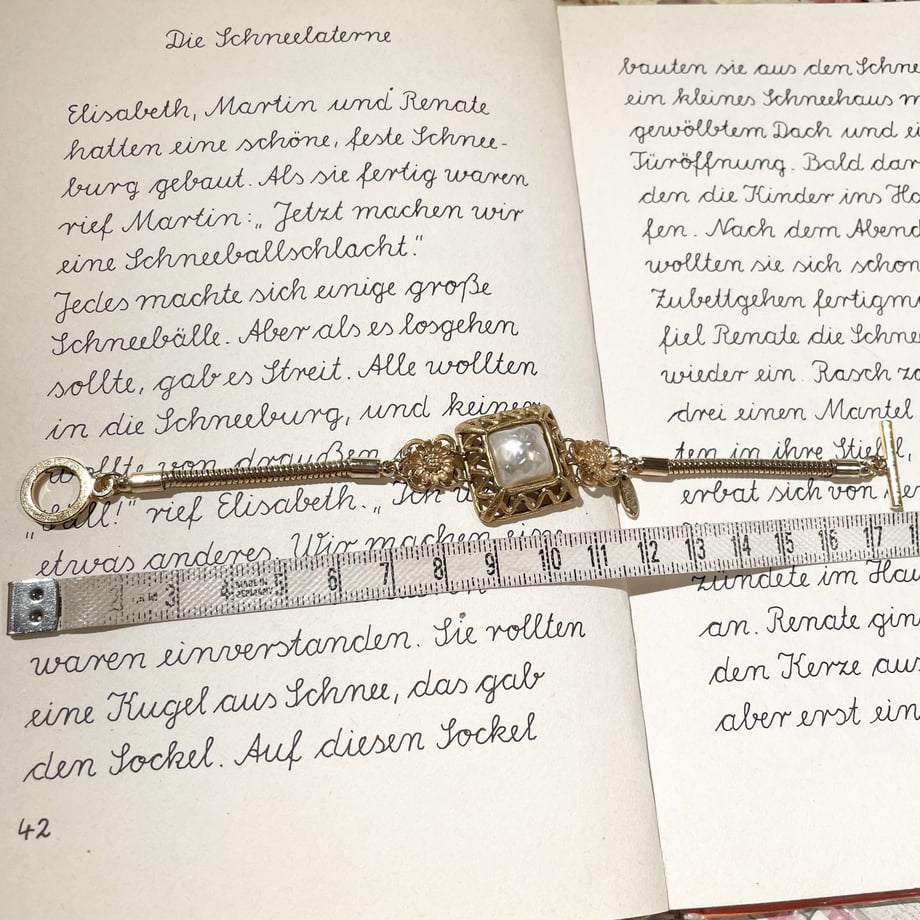 Die Schneelaterne
Elisabeth, Martin und Renate
hatten eine schöne, feste Schnee-
burg gebaut. Als sie fertig waren
rief Martin: „Jetzt machen wir
eine Schneeballschlacht."
Jedes machte sich einige große
Schneebälle. Aber als es losgehen
sollte, gab es Streit. Alle wollten
in die Schneeburg, und keiner
wollte von draußen
rief Elisabeth. „Ich
etwas anderes. Wir machen eine
waren einverstanden. Sie rollten
eine Kugel aus Schnee, das gab
den Sockel. Auf diesen Sockel
42
bauten sie aus den Schne
ein kleines Schneehaus m
gewölbtem Dach und ei
Türöffnung. Bald dar
den die Kinder ins Ha
fen. Nach dem Abend
wollten sie sich schon
Zubettgehen fertigm
fiel Renate die Schne
wieder ein. Rasch zo
drei einen Mantel
ten in ihre Stiefel,
erbat sich von
zündete im Hau
an. Renate gin
den Kerze aus
aber erst ein
3 4 5 6 7 8 9 10 11 12 13 14 15 16 17
MADE IN
GERMANY